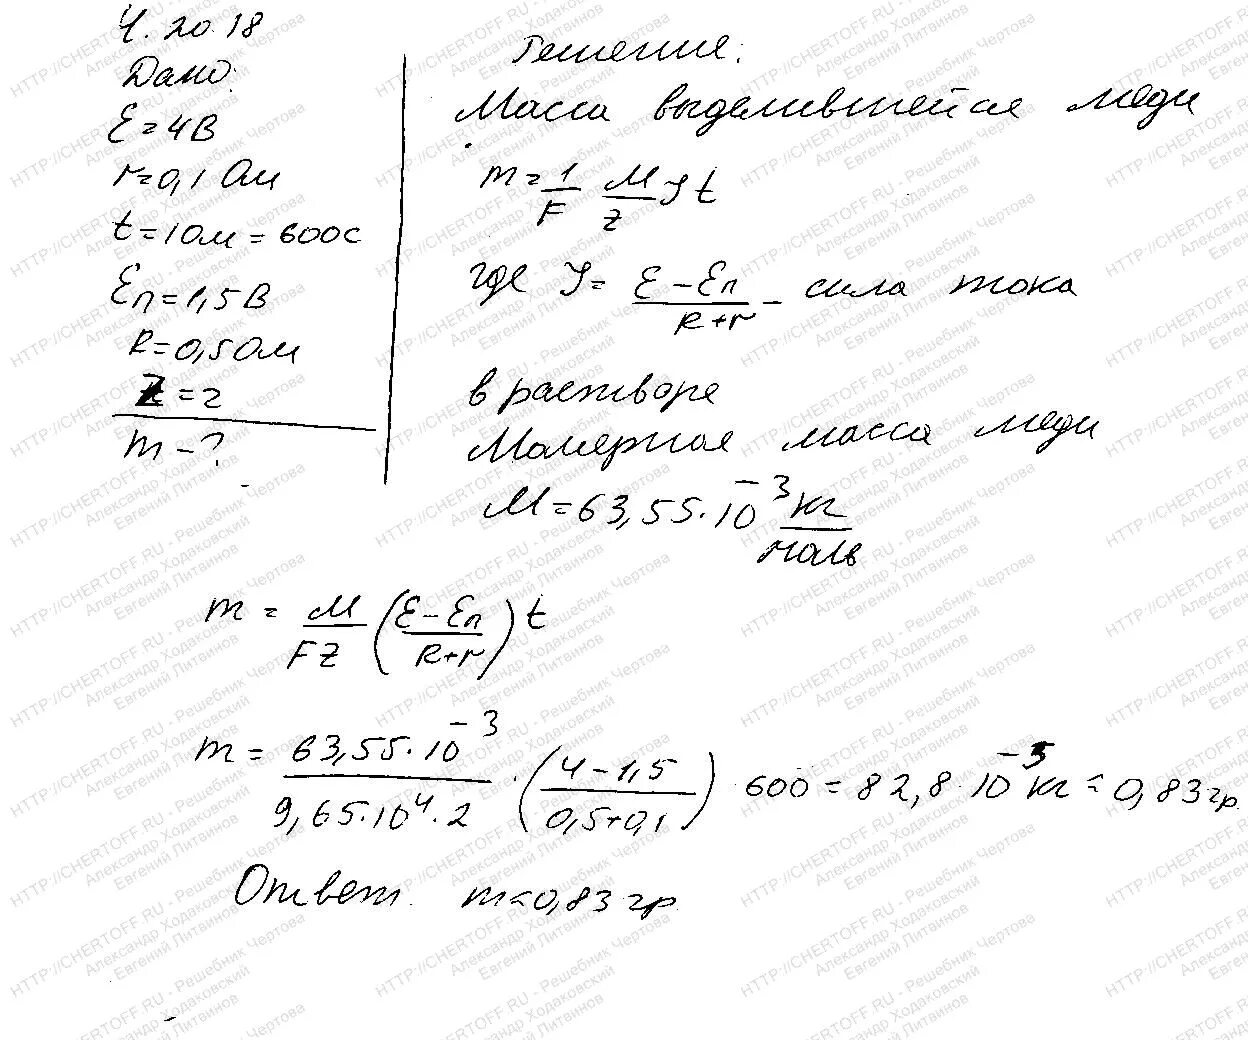 Ч. 20.18
Дано:
Ɛ = 4 В
r = 0,1 Ом
t = 10 м = 600 с
Ɛп = 1,5 В
R = 0,5 Ом
Z = 2
m - ?
Решение:
Масса выделившейся меди
m = 1/F M/Z J t
где J = (Ɛ - Ɛп)/(R + r) - сила тока
в растворе
Молярная масса меди
M = 63,55 · 10^-3 кг/моль
m = M/(FZ) ((Ɛ - Ɛп)/(R + r)) t
m = (63,55 · 10^-3)/(9,65 · 10^4 · 2) · ((4 - 1,5)/(0,5 + 0,1)) 600 = 82,8 · 10^-5 кг = 0,83 гр.
Ответ. m = 0,83 гр.
HTTP://CHERTOFF.RU - Решебник Чертова
Александр Ходаковский
Евгений Литвинов